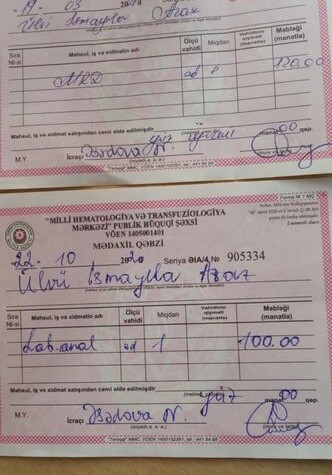 19 03
Ölçü vahidi Miqdarı Vahidinin qiyməti (manatla) Məbləği (manatla)
Sıra №-si Məhsul, iş və xidmətin adı
əd 120,00
Məhsul, iş və xidmət satışından cəmi əldə edilmişdir yüz iyirmi manat 00 qəp.
M.Y. İcraçı Əsədova N.
"MİLLİ HEMATOLOGİYA VƏ TRANSFUZİOLOGİYA
MƏRKƏZİ" PUBLİK HÜQUQİ ŞƏXSİ
VÖEN 1405001401
MƏDAXİL QƏBZİ
22 10 2020 Seriya ƏİA/4 № 905334
Ülvü İsmayıla Araz
Sıra №-si Məhsul, iş və xidmətin adı Ölçü vahidi Miqdarı Vahidinin qiyməti (manatla) Məbləği (manatla)
Lab.anal əd 1 100.00
Məhsul, iş və xidmət satışından cəmi əldə edilmişdir yüz 00
M.Y. İcraçı Əsədova N.